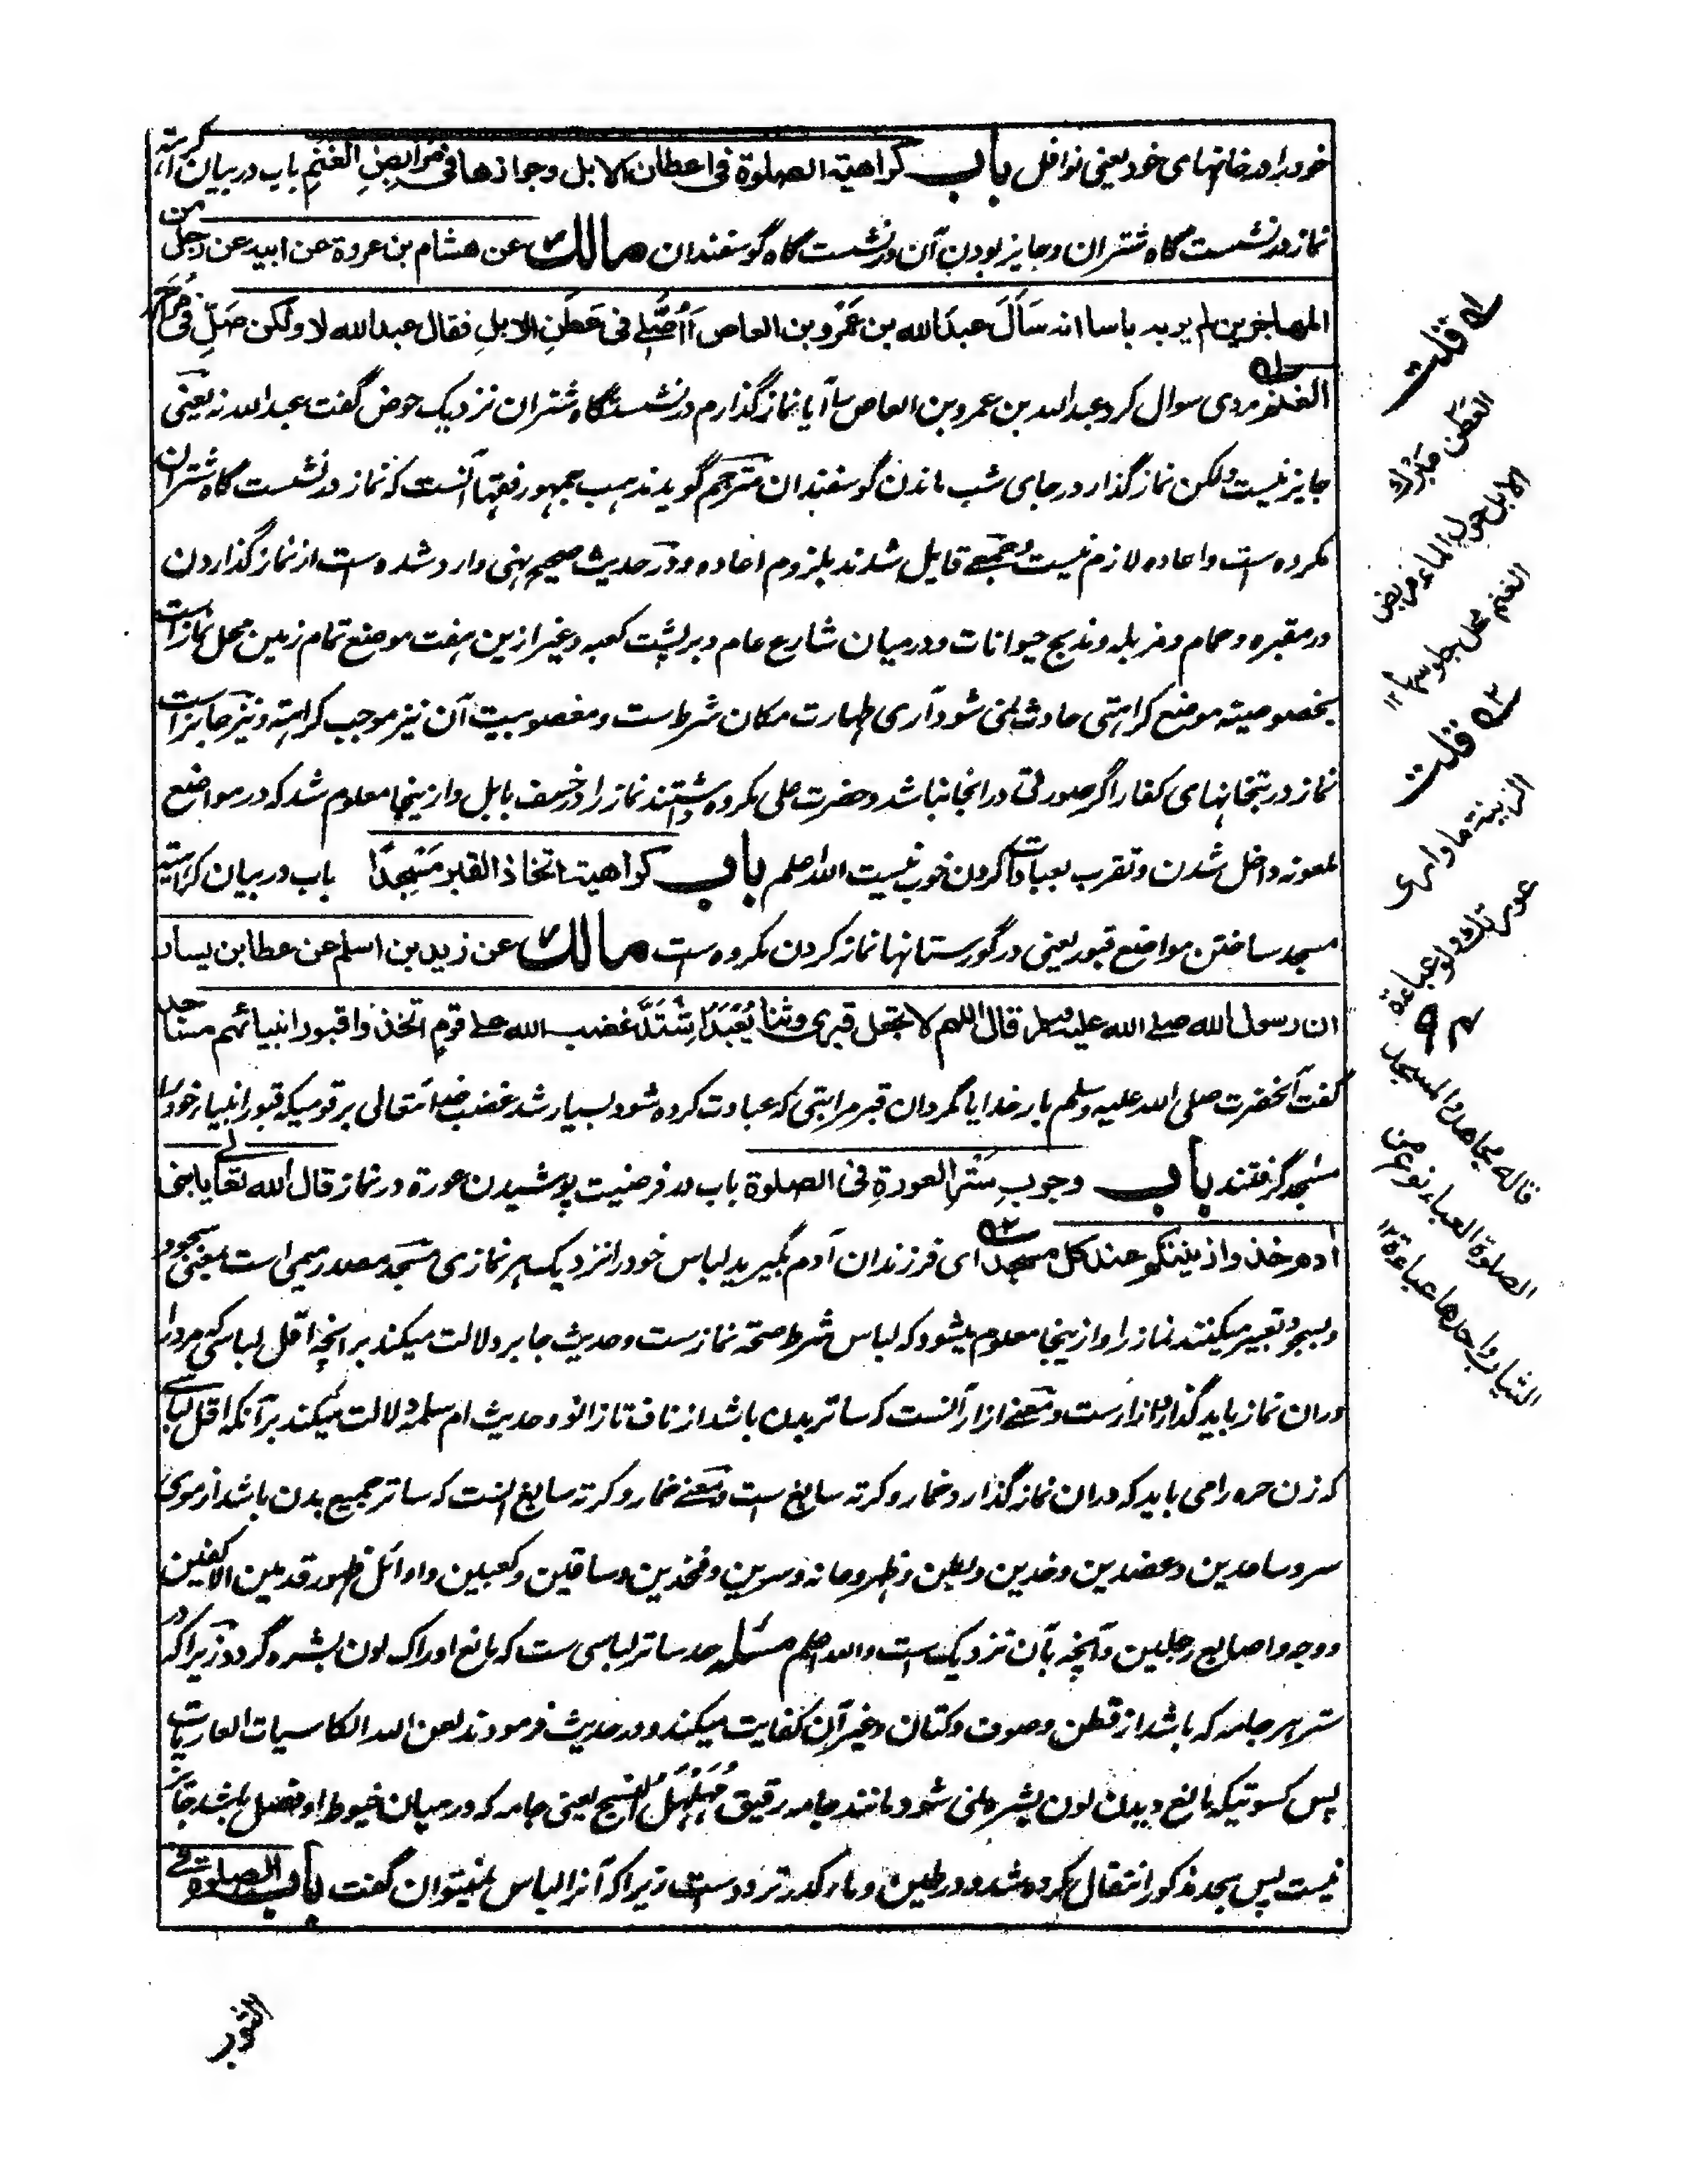 خود را در خانهای خود یعنی نوافل باب کراهیة الصلوة فی اعطان الابل وجوازها فی مرابض الغنم باب در بیان کراهیت
نماز در نشست گاه شتران و جایز بودن آن در نشست گاه گوسفندان مالک عن هشام بن عروة عن ابیه عن رجل من
المهاجرین لم یر به باسا انه سأل عبدالله بن عمرو بن العاص أأصلی فی عطن الابل فقال عبدالله لا ولکن صل فی مراح
الغنم مردی سوال کرد عبدالله بن عمرو بن العاص را آیا نماز گذارم در نشست گاه شتران نزدیک حوض گفت عبدالله نه یعنی
جایز نیست ولکن نماز گذار در جای شب ماندن گوسفندان مترجم گوید مذهب جمهور فقها آنست که نماز در نشست گاه شتران
مکروه ست و اعاده لازم نیست و جمعی قایل شدند بلزوم اعاده و در حدیث صحیح نهی وارد شده ست از نماز گذاردن
در مقبره و حمام و مزبله و مذبح حیوانات و در میان شارع عام و بر پشت کعبه و غیر ازین هفت موضع تمام زمین محل نماز است
بخصوصیته موضع کراهتی حادث نمی شود آری طهارت مکان شرط ست و مغصوبیت آن نیز موجب کراهته و نیز جایز است
نماز در بتخانهای کفار اگر صورتی در انجا نباشد و حضرت علی مکروه داشتند نماز را در خسف بابل و ازینجا معلوم شد که در مواضع
ملعونه داخل شدن و تقرب بعبادات کردن خوب نیست والله اعلم باب کراهیة اتخاذ القبر مسجدا باب در بیان کراهیته
مسجد ساختن مواضع قبور یعنی در گورستانها نماز کردن مکروه ست مالک عن زید بن اسلم عن عطا بن یسار
ان رسول الله صلی الله علیه وسلم قال اللهم لا تجعل قبری وثنا یعبد اشتد غضب الله علی قوم اتخذوا قبور انبیائهم مساجد
گفت آنحضرت صلی الله علیه وسلم بار خدایا مگردان قبر مرا بتی که عبادت کرده شود بسیار شد غضب خدا تعالی بر قومیکه قبور انبیاء خود را
مسجد گرفتند باب وجوب ستر العورة فی الصلوة باب در فرضیت پوشیدن عورة در نماز قال الله تعالی یا بنی
آدم خذوا زینتکم عند کل مسجد ای فرزندان آدم بگیرید لباس خود را نزدیک هر نمازی مسجد مصدر میمی است بمعنی سجود
و بسجود تعبیر میکنند نماز را و ازینجا معلوم میشود که لباس شرط صحة نماز ست و حدیث جابر دلالت میکند بر انچه اقل لباسی که مرد را
دران نماز باید گذارد ازار ست و معنی ازار آنست که ساتر بدن باشد از ناف تا زانو و حدیث ام سلمه دلالت میکند بر آنکه اقل لباسی
که زن حره را می باید که دران نماز گذارد خمار و کرته سابغ است و معنی خمار و کرته سابغ آنست که ساتر جمیع بدن باشد از موی
سر و ساعدین و عضدین و خدین و بطن و ظهر و عانه و سرین و فخذین و ساقین و کعبین و اوائل ظهور قدمین الا کفین
و وجه و اصابع رجلین و آنچه بآن نزدیک است والله اعلم مسئله حد ساتر لباسی ست که مانع ادراک لون بشره گردد زیراکه در
ستر هر جامه که باشد از قطن و صوف و کتان و غیر آن کفایت میکند و در حدیث فرمودند لعن الله الکاسیات العاریات
پس کسوتیکه مانع دیدن لون بشره نمی شود مانند جامه رقیق مهلهل النسج یعنی جامه که در میان خیوط او فصل باشد جائز
نیست پس بحد مذکور انتقال کرده شد و در طین و ماء کدر تردد ست زیراکه آنرا لباس نمیتوان گفت باب الصلوة فی
الثوب
له قلت
العطن مبرک
الابل حول الماء مربض
الغنم محل جلوسها ۱۲
قلت
الزینة ما واری
عورتک ولو عباءة
قاله مجاهد والمسجد
الصلوة العباء نوع من
الثیاب واحدها عباءة ۱۲